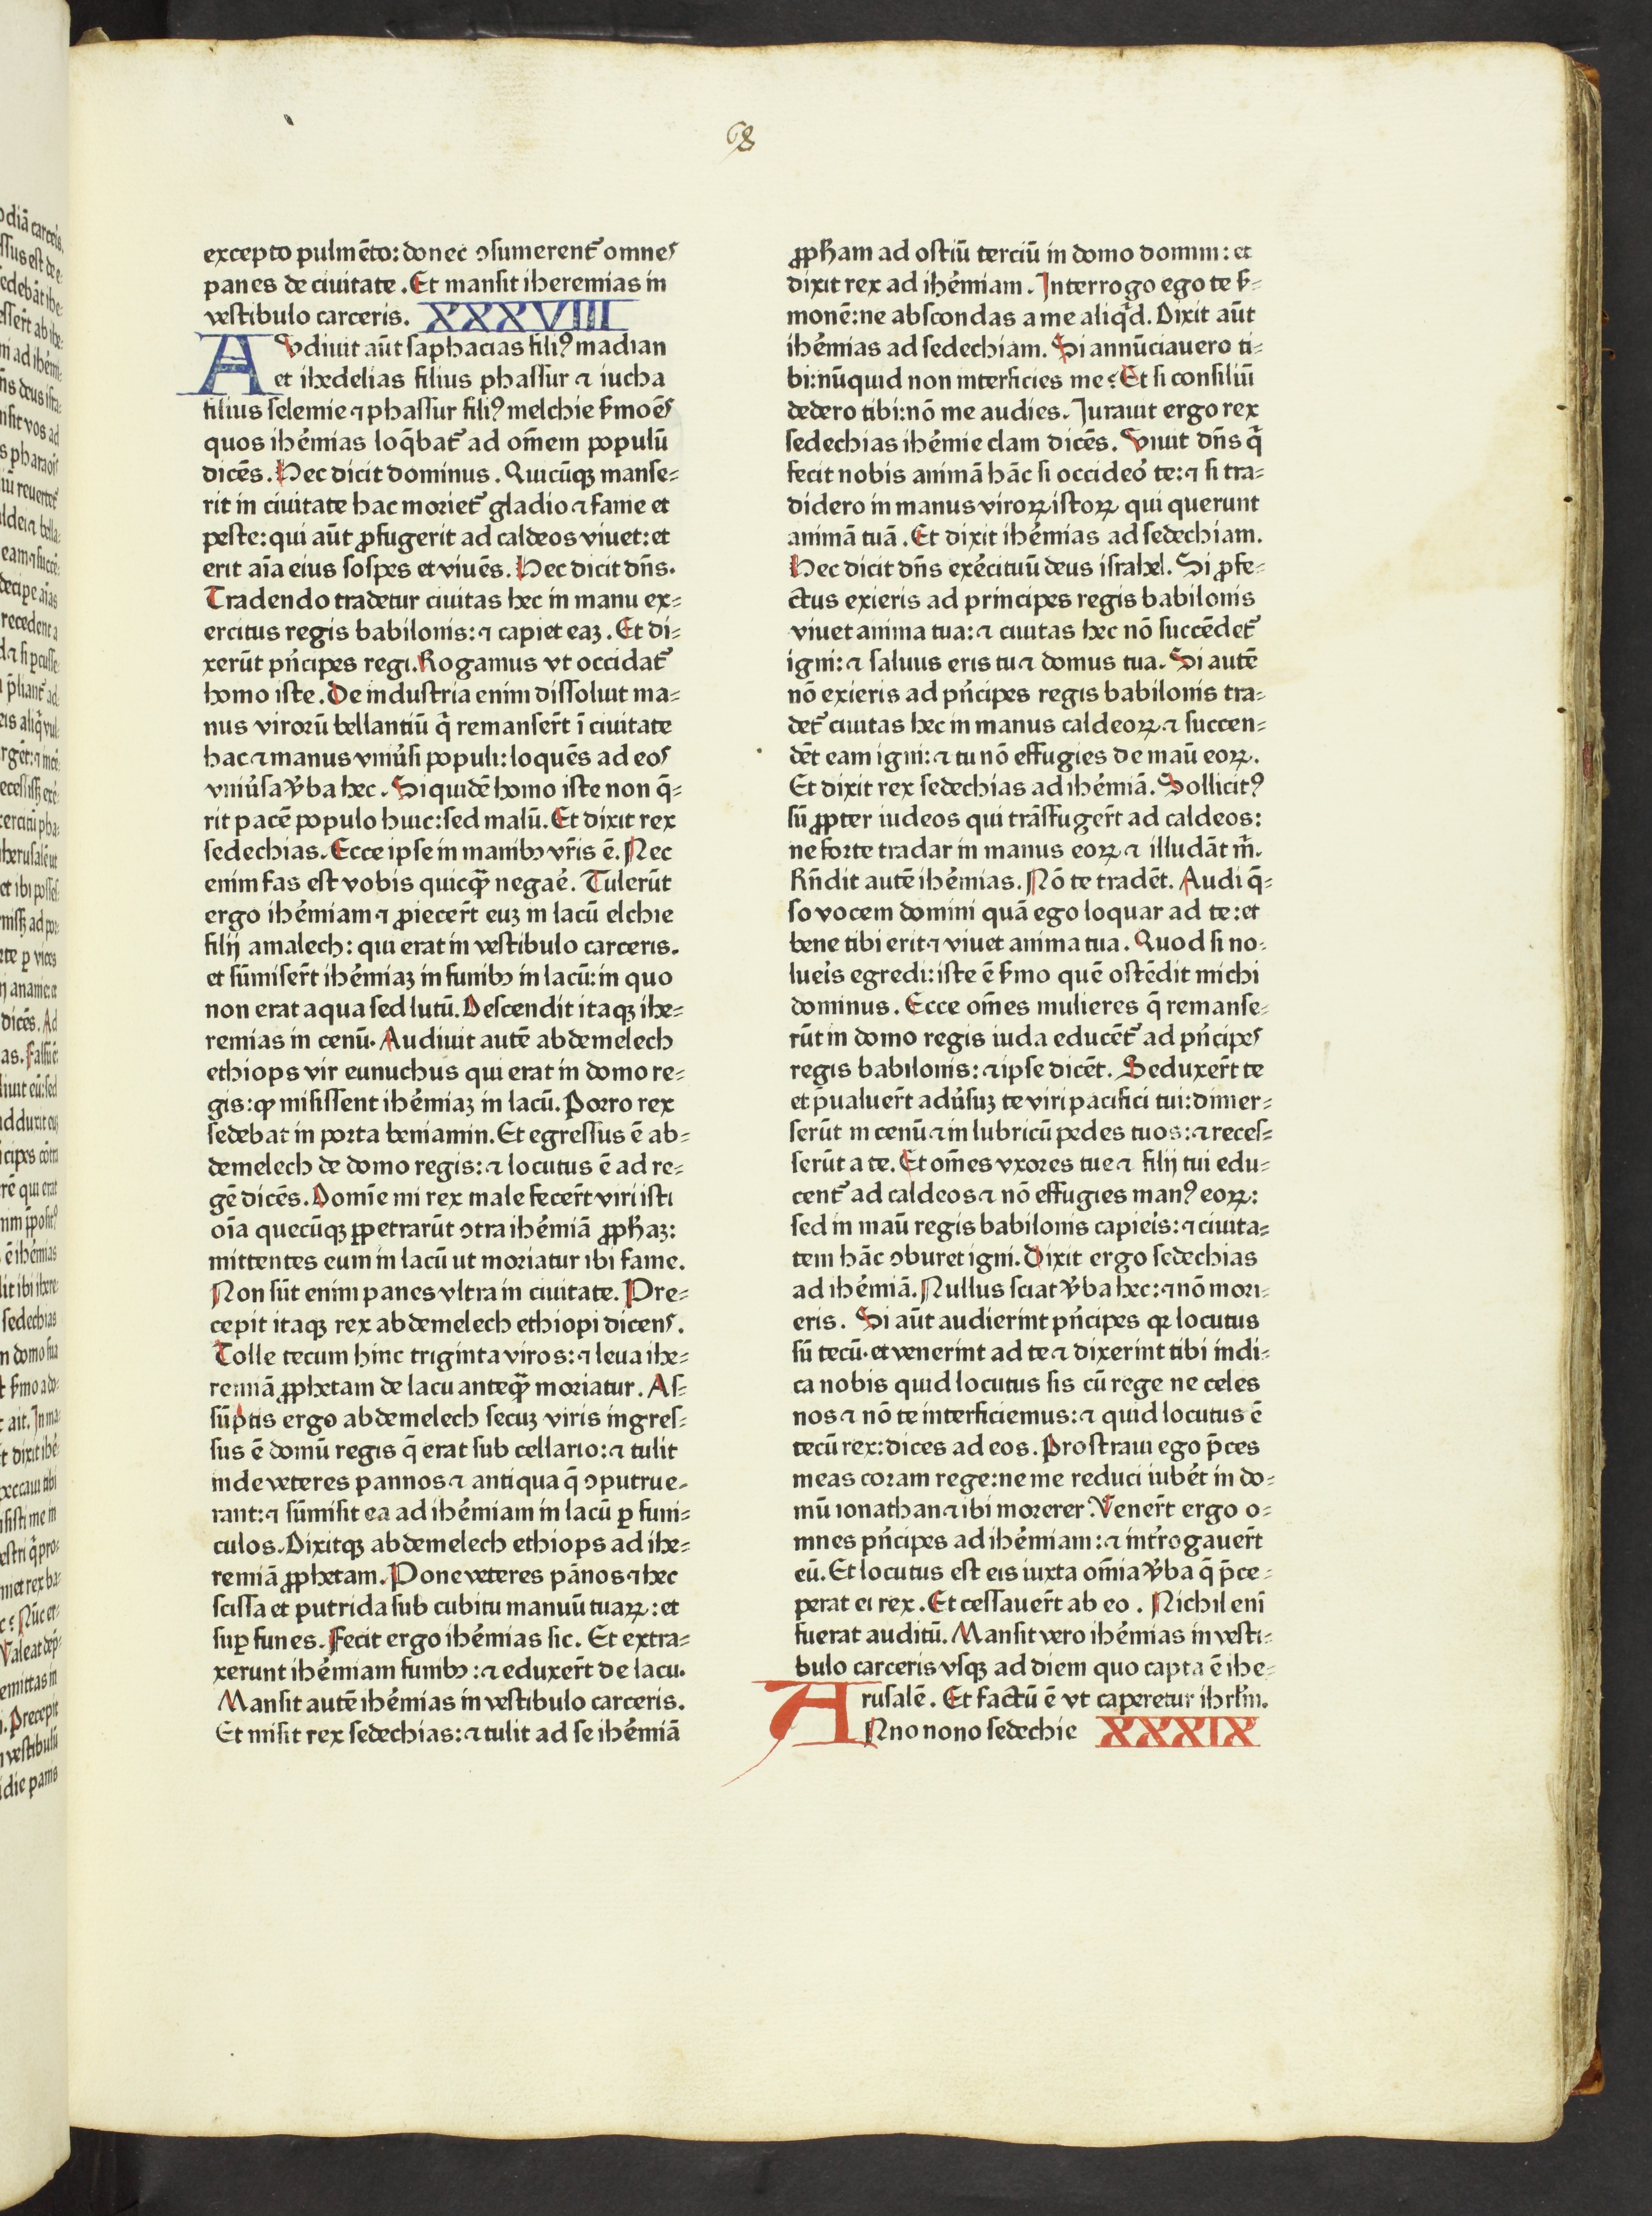 68
excepto pulmēto: donec ɔsumerent᷑ omnes
panes de ciuitate. Et mansit iheremias in
vestibulo carceris. XXXVIIII
AVdiuit aūt saphacias filiꝰ madian
et ihedelias filius phassur ⁊ iucha
filius selemie ⁊ phassur filiꝰ melchie ẜmoēs
quos ihēmias loq̄bat᷑ ad om̄em populū
dicēs. Hec dicit dominus. Quicūqꝫ manse⸗
rit in ciuitate hac moriet᷑ gladio ⁊ fame et
peste: qui aūt ꝓfugerit ad caldeos viuet: et
erit aīa eius sospes et viuēs. Hec dicit dn̄s.
Tradendo tradetur ciuitas hec in manu ex⸗
ercitus regis babilonis: ⁊ capiet eaꝫ. Et di⸗
xerūt pn̄cipes regi. Rogamus vt occidat᷑
homo iste. De industria enim dissoluit ma⸗
nus virorū bellantiū q̄ remanser̄t ī ciuitate
hac ⁊ manus vniūsi populi: loquēs ad eos
vniūsa v̄ba hec. Siquidē homo iste non q̄⸗
rit pacē populo huic: sed malū. Et dixit rex
sedechias. Ecce ipse in manibꝫ vr̄is ē. Nec
enim fas est vobis quicqꝫ̄ negaē. Tulerūt
ergo ihēmiam ⁊ ꝓiecer̄t euꝫ in lacū elchie
filij amalech: qui erat in vestibulo carceris.
et sūmiser̄t ihēmiaꝫ in funibꝫ in lacū: in quo
non erat aqua sed lutū. Descendit itaqꝫ ihe⸗
remias in cenū. Audiuit autē abdemelech
ethiops vir eunuchus qui erat in domo re⸗
gis: ꝙ misissent ihēmiaꝫ in lacū. Porro rex
sedebat in porta beniamin. Et egressus ē ab⸗
demelech de domo regis: ⁊ locutus ē ad re⸗
gē dicēs. Domīe mi rex male fecer̄t viri isti
oīa quecūqꝫ ꝑpetrarūt ɔtra ihēmiā ꝓpħaꝫ:
mittentes eum in lacū ut moriatur ibi fame.
Non sūt enim panes vltra in ciuitate. Pre⸗
cepit itaqꝫ rex abdemelech ethiopi dicens.
Tolle tecum hinc triginta viros: ⁊ leua ihe⸗
remiā ꝓphetam de lacu anteqꝫ̄ moriatur. As⸗
sūptis ergo abdemelech secuꝫ viris ingres⸗
sus ē domū regis q̄ erat sub cellario: ⁊ tulit
inde veteres pannos ⁊ antiqua q̄ ɔputrue⸗
rant: ⁊ sūmisit ea ad ihēmiam in lacū ꝑ funi⸗
culos. Dixitqꝫ abdemelech ethiops ad ihe⸗
remiā ꝓphetam. Pone veteres pānos ⁊ hec
scissa et putrida sub cubitu manuū tuaꝝ: et
suꝑ funes. Fecit ergo ihēmias sic. Et extra⸗
xerunt ihēmiam funibꝫ: ⁊ eduxer̄t de lacu.
Mansit autē ihēmias in vestibulo carceris.
Et misit rex sedechias: ⁊ tulit ad se ihēmiā
ꝓpħam ad ostiū terciū in domo domini: et
dixit rex ad ihēmiam. Interrogo ego te ẜ⸗
monē: ne abscondas a me aliq̄d. Dixit aūt
ihēmias ad sedechiam. Si annūciauero ti⸗
bi: nūquid non interficies me? Et si consiliū
dedero tibi: nō me audies. Iurauit ergo rex
sedechias ihēmie clam dicēs. Viuit dn̄s q̄
fecit nobis animā hāc si occideō te: ⁊ si tra⸗
didero in manus viroꝝ istoꝝ qui querunt
animā tuā. Et dixit ihēmias ad sedechiam.
Hec dicit dn̄s exērcituū deus israhel. Si ꝓfe⸗
ctus exieris ad principes regis babilonis
viuet anima tua: ⁊ ciuitas hec nō succēdet᷑
igni: ⁊ saluus eris tu ⁊ domus tua. Si autē
nō exieris ad pn̄cipes regis babilonis tra⸗
det᷑ ciuitas hec in manus caldeoꝝ ⁊ succen⸗
dēt eam igni: ⁊ tu nō effugies de maū eoꝝ.
Et dixit rex sedechias ad ihēmiā. Sollicitꝰ
sū ꝓpter iudeos qui trāsfuger̄t ad caldeos:
ne forte tradar in manus eoꝝ ⁊ illudāt m̄.
Rn̄dit autē ihēmias. Nō te tradēt. Audi q̄⸗
so vocem domini quā ego loquar ad te: et
bene tibi erit ⁊ viuet anima tua. Quod si no⸗
lueīs egredi: iste ē ẜmo quē ostēdit michi
dominus. Ecce om̄es mulieres q̄ remanse⸗
rūt in domo regis iuda educēt᷑ ad pn̄cipes
regis babilonis: ⁊ ipse dicēt. Seduxer̄t te
et p̄ualuer̄t adūsuꝫ te viri pacifici tui: dimer⸗
serūt in cenū ⁊ in lubricū pedes tuos: ⁊ reces⸗
serūt a te. Et om̄es vxores tue ⁊ filij tui edu⸗
cent᷑ ad caldeos ⁊ nō effugies manꝰ eoꝝ:
sed in maū regis babilonis capieīs: ⁊ ciuita⸗
tem hāc ɔburet igni. Dixit ergo sedechias
ad ihēmiā. Nullus sciat v̄ba hec: ⁊ nō mori⸗
eris. Si aūt audierint pn̄cipes qꝛ locutus
sū tecū. et venerint ad te ⁊ dixerint tibi indi⸗
ca nobis quid locutus sis cū rege ne celes
nos ⁊ nō te interficiemus: ⁊ quid locutus ē
tecū rex: dices ad eos. Prostraui ego p̄ces
meas coram rege: ne me reduci iubēt in do⸗
mū ionathan ⁊ ibi morerer. Vener̄t ergo o⸗
mnes pn̄cipes ad ihēmiam: ⁊ int̄rogauer̄t
eū. Et locutus est eis iuxta om̄ia v̄ba q̄ p̄ce⸗
perat ei rex. Et cessauer̄t ab eo. Nichil enī
fuerat auditū. Mansit vero ihēmias in vesti⸗
bulo carceris vsqꝫ ad diem quo capta ē ihe⸗
rusalē. Et factū ē vt caperetur ihrl̄m.
ANno nono sedechie XXXIX